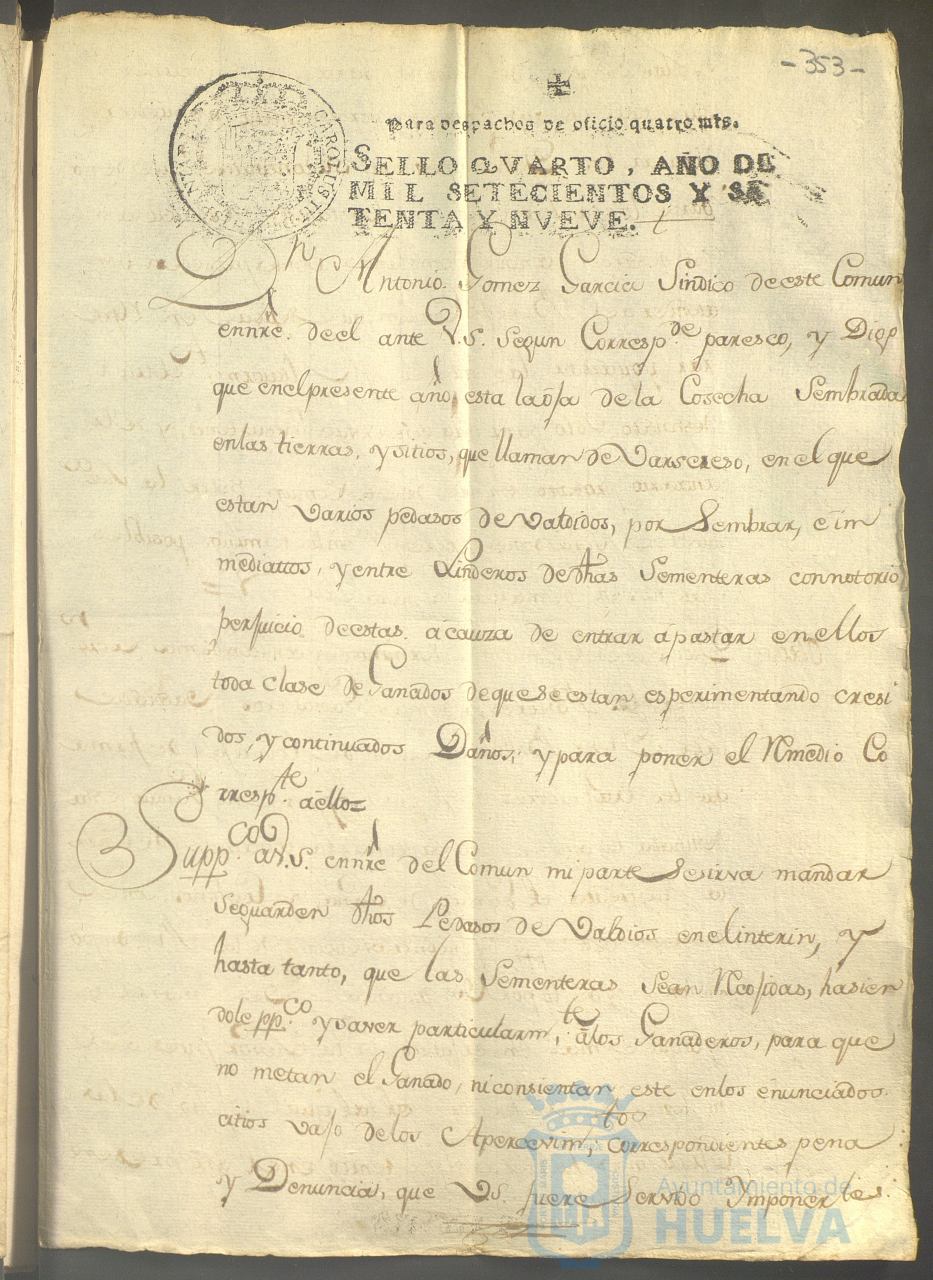 -353-
Para despachos de oficio quatro mrs.
SELLO QVARTO, AÑO DE
MIL SETECIENTOS Y SE
TENTA Y NVEVE.
Dn Antonio Gomez Garcia Sindico de este Comun
en nre. de el ante V.S. segun Corresp.de paresco, y Digo
que en el presente año esta la oja de la Cosecha Sembrada
en las tierras, y sitios, que llaman de Varsereso, en el que
estan varios pedasos de Valdidos, por Sembrar, é in
mediattos, y entre Linderos de dhas Sementeras con notorio
perjuicio de estas. á cauza de entrar á pastar en ellos
toda clase de Ganados de que se estan esperimentando cresi
dos, y continuados Daños; y para poner el Rmedio Co
rresp.te á ello=
Supp.co a V.S. en nre del Comun mi parte se sirva mandar
se guarden dhos Pedasos de Valdios en el interin, y
hasta tanto, que las Sementeras sean Rcojidas, hasien
dole pp.co y saver particularm.te á los Ganaderos, para que
no metan el Ganado, ni consientan este en los enunciados
citios vajo de los Apercevim.tos correspondientes pena
y Denuncia, que V.S. fuere Servido Imponerles.
Ayuntamiento de
HUELVA